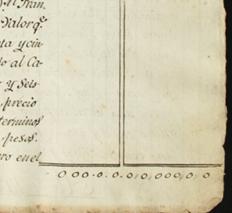 Fran.
Valor q.e
ta y cin-
o al Ca-
y Seis
precio
terminos
pesos.
ro en el
000.0.0.0,0,000,0,0